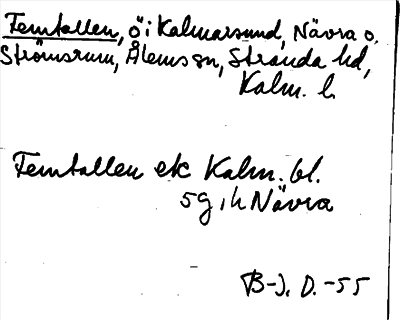 Femtallen, ö i Kalmarsund, Nävra o.
Strömsrum, Ålems sn, Stranda hd,
Kalm. l.
Femtallen ek Kalm. bl.
5g, h Nävra
B-J. D. -55